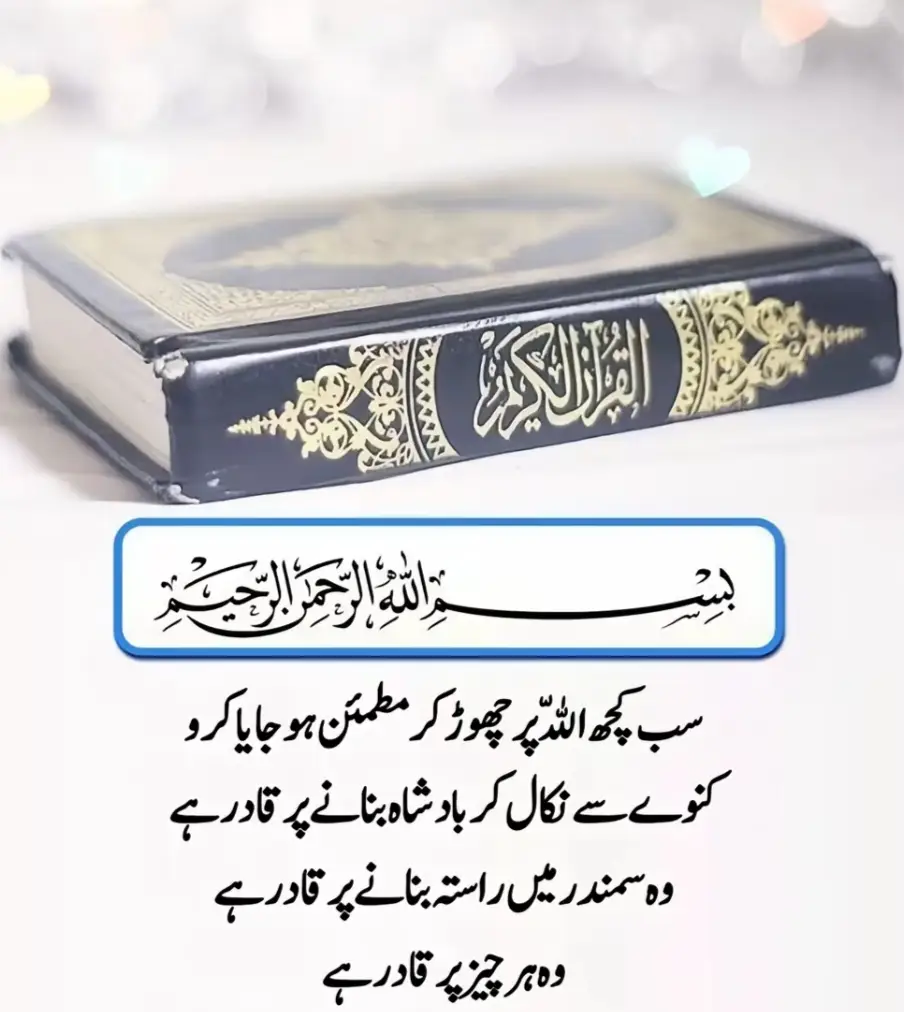 القرآن الكريم
بِسْمِ اللهِ الرَّحْمٰنِ الرَّحِيْمِ
سب کچھ اللہؔ پر چھوڑ کر مطمئن ہو جایا کرو
کنوے سے نکال کر بادشاہ بنانے پر قادر ہے
وہ سمندر میں راستہ بنانے پر قادر ہے
وہ ہر چیز پر قادر ہے